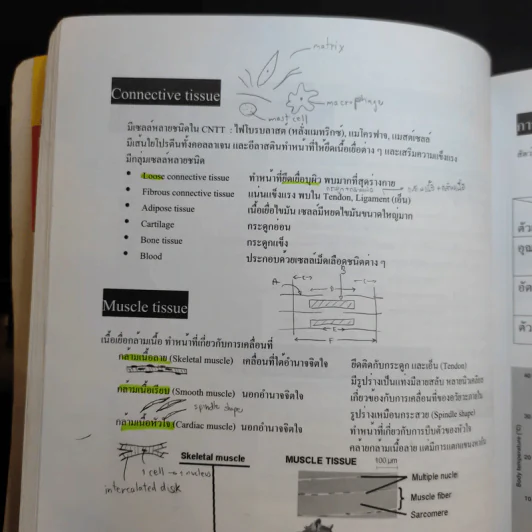 matrix
Connective tissue
macrophage
mast cell
มีเซลล์หลายชนิดใน CNTT : ไฟโบรบลาสต์ (หลั่งแมทริกซ์), แมโครฟาจ, แมสต์เซลล์
มีเส้นใยโปรตีนทั้งคอลลาเจน และอีลาสตินทำหน้าที่ให้ยึดเนื้อเยื่อต่าง ๆ และเสริมความแข็งแรง
มีกลุ่มเซลล์หลายชนิด
• Loose connective tissue ทำหน้าที่ยึดเยื่อบุผิว พบมากที่สุดร่างกาย
• Fibrous connective tissue แน่นแข็งแรง พบใน Tendon, Ligament (เอ็น)
• Adipose tissue เนื้อเยื่อไขมัน เซลล์มีหยดไขมันขนาดใหญ่มาก
• Cartilage กระดูกอ่อน
• Bone tissue กระดูกแข็ง
• Blood ประกอบด้วยเซลล์เม็ดเลือดชนิดต่าง ๆ
Muscle tissue
เนื้อเยื่อกล้ามเนื้อ ทำหน้าที่เกี่ยวกับการเคลื่อนที่
กล้ามเนื้อลาย (Skeletal muscle) เคลื่อนที่ได้อำนาจจิตใจ ยึดติดกับกระดูก และเอ็น (Tendon)
มีรูปร่างเป็นแท่งมีลายสลับ หลายนิวเคลียส
กล้ามเนื้อเรียบ (Smooth muscle) นอกอำนาจจิตใจ เกี่ยวของกับการเคลื่อนที่ของอวัยวะภายใน
spindle shape รูปร่างเหมือนกระสวย (Spindle shape)
กล้ามเนื้อหัวใจ (Cardiac muscle) นอกอำนาจจิตใจ ทำหน้าที่เกี่ยวกับการบีบตัวของหัวใจ
คล้ายกล้ามเนื้อลาย แต่มีการแตกแขนง
Skeletal muscle
1 cell → 1 nucleus
intercalated disk
MUSCLE TISSUE 100 µm
Multiple nuclei
Muscle fiber
Sarcomere
Body temperature (°C)
40